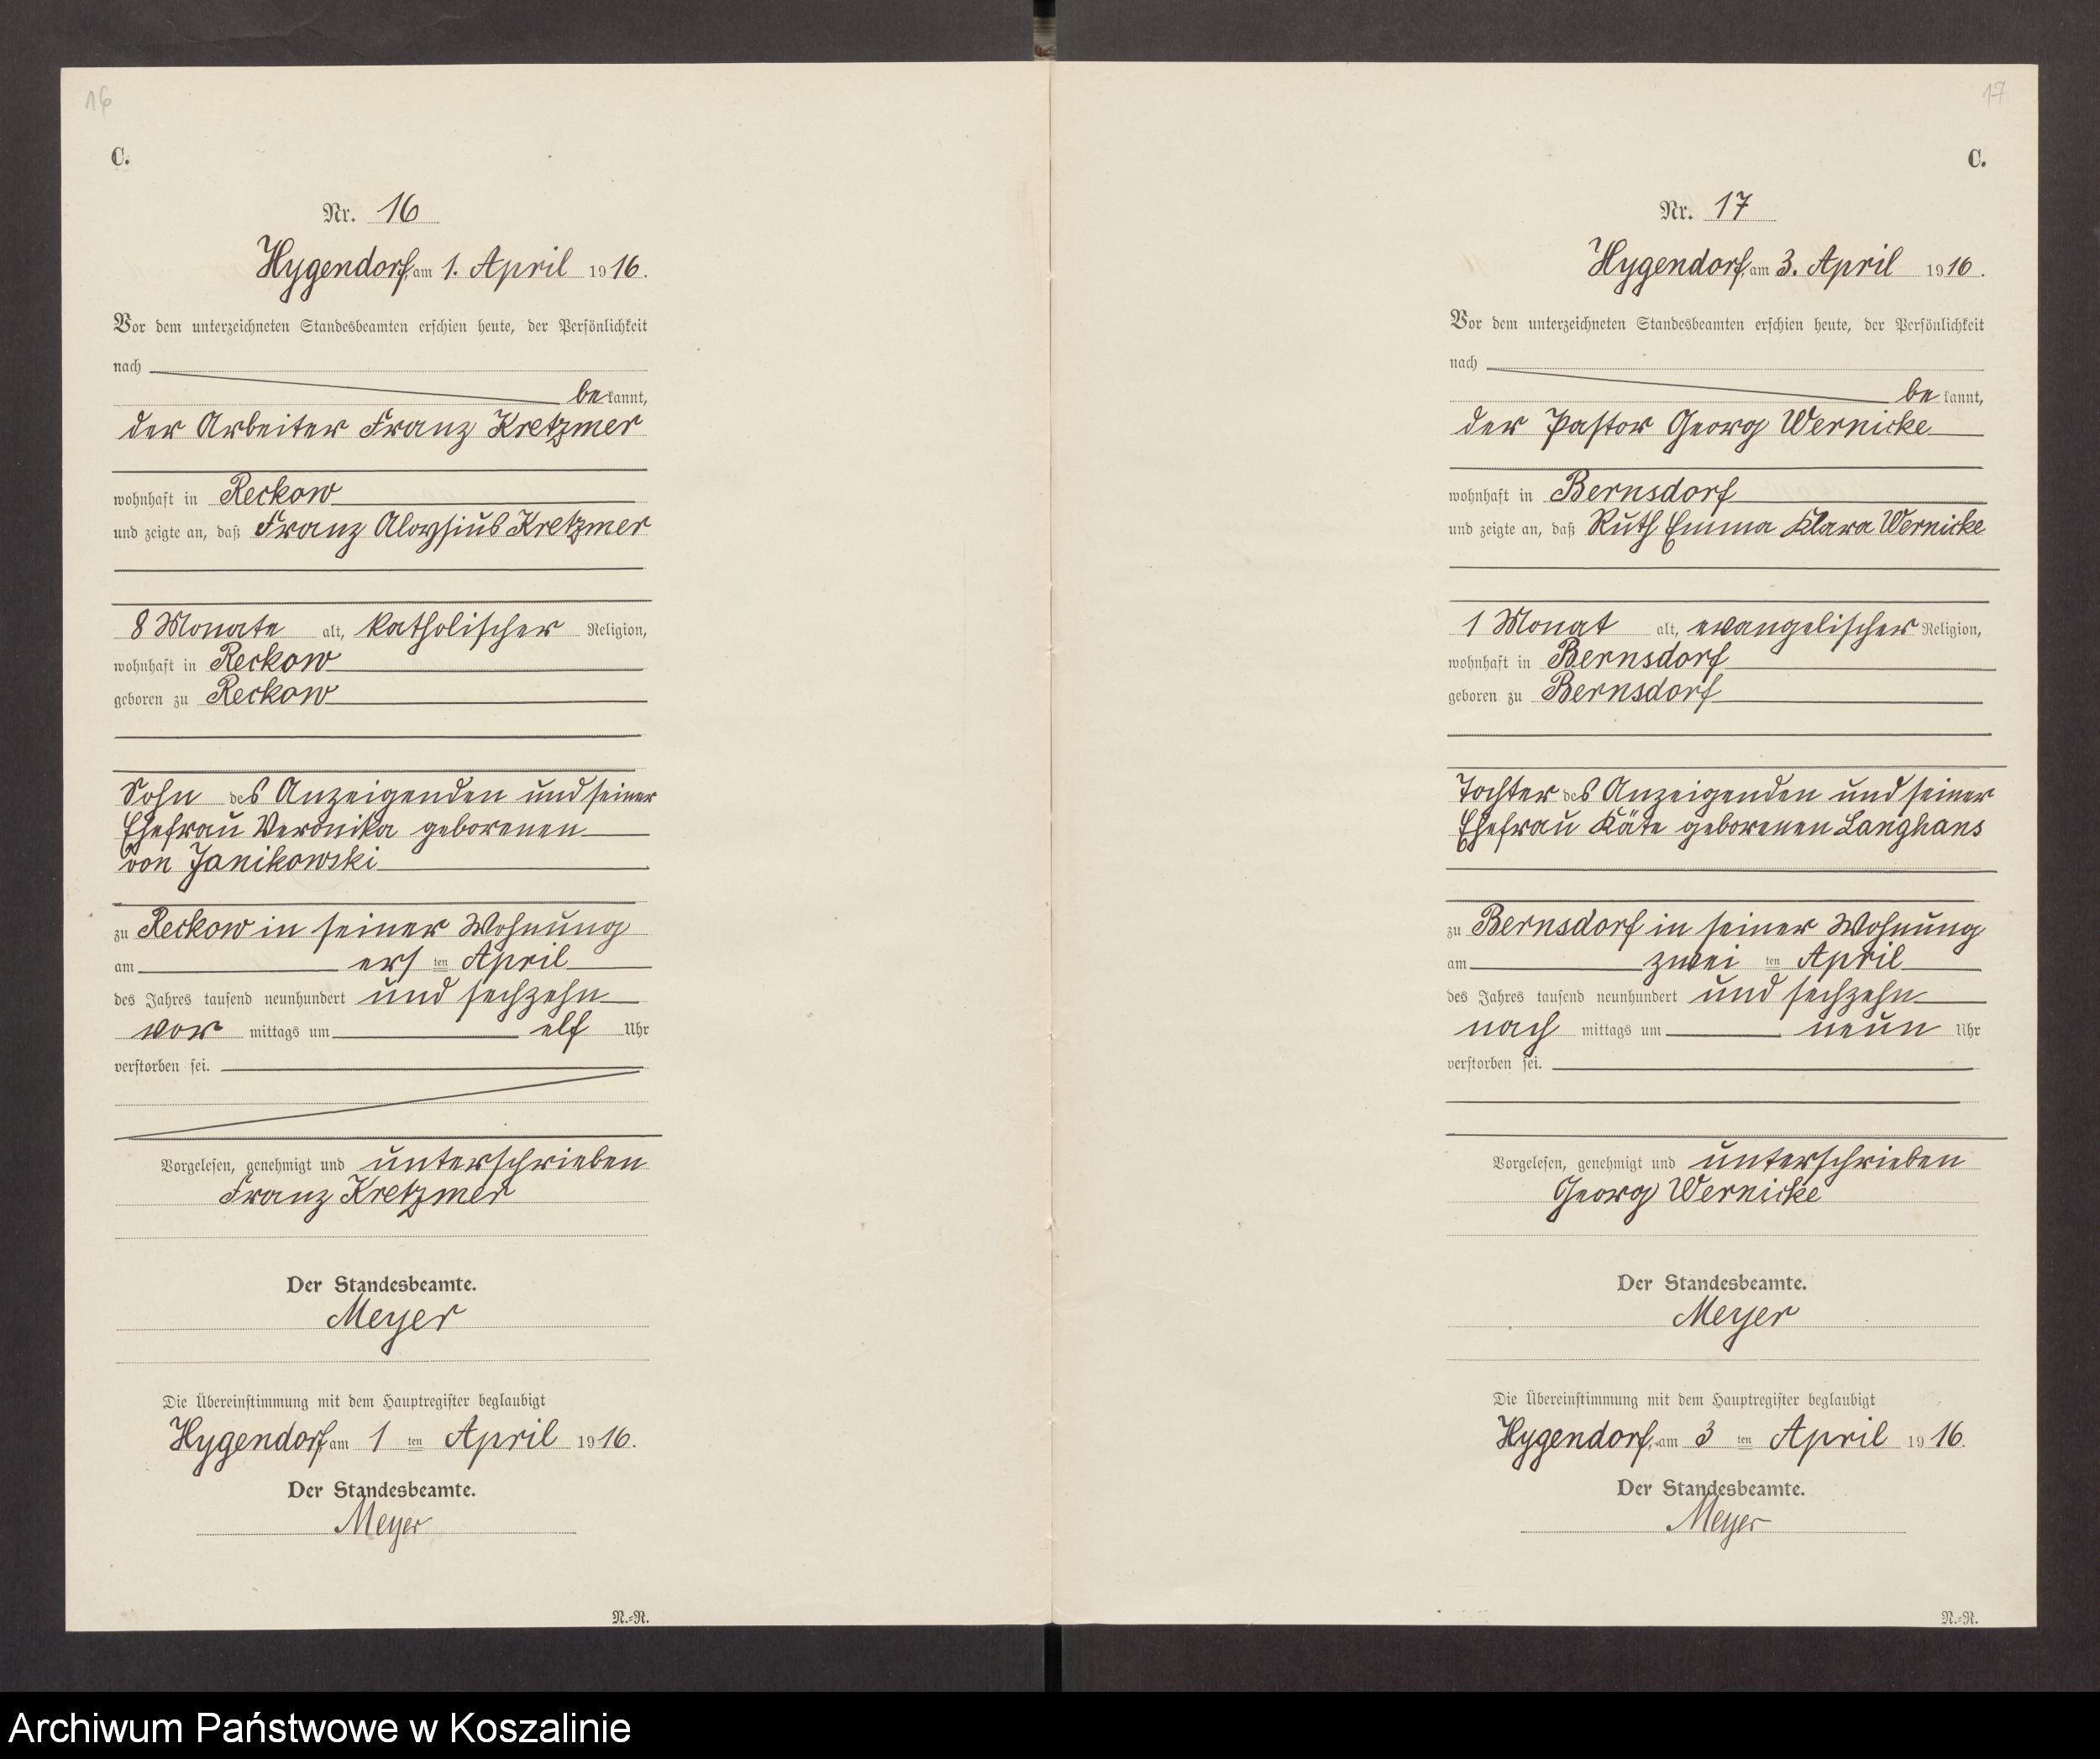 16
C.
Nr. 16
Hygendorf, am 1. April 1916.
Vor dem unterzeichneten Standesbeamten erschien heute, der Persönlichkeit
nach
bekannt,
der Arbeiter Franz Kretzmer
wohnhaft in Reckow
und zeigte an, daß Franz Aloysius Kretzmer
8 Monate alt, katholischer Religion,
wohnhaft in Reckow
geboren zu Reckow
Sohn des Anzeigenden und seiner
Ehefrau Veronika geborenen
von Janikowski
zu Reckow in seiner Wohnung
am ersten April
des Jahres tausend neunhundert und sechzehn
vormittags um elf Uhr
verstorben sei.
Vorgelesen, genehmigt und unterschrieben
Franz Kretzmer
Der Standesbeamte.
Meyer
Die Übereinstimmung mit dem Hauptregister beglaubigt
Hygendorf, am 1ten April 1916.
Der Standesbeamte.
Meyer
N.=R.
17
C.
Nr. 17
Hygendorf, am 3. April 1916.
Vor dem unterzeichneten Standesbeamten erschien heute, der Persönlichkeit
nach
bekannt,
der Pastor Georg Wernicke
wohnhaft in Bernsdorf
und zeigte an, daß Ruth Emma Klara Wernicke
1 Monat alt, evangelischer Religion,
wohnhaft in Bernsdorf
geboren zu Bernsdorf
Tochter des Anzeigenden und seiner
Ehefrau Käte geborenen Langhans
zu Bernsdorf in seiner Wohnung
am zweiten April
des Jahres tausend neunhundert und sechzehn
nachmittags um neun Uhr
verstorben sei.
Vorgelesen, genehmigt und unterschrieben
Georg Wernicke
Der Standesbeamte.
Meyer
Die Übereinstimmung mit dem Hauptregister beglaubigt
Hygendorf, am 3ten April 1916.
Der Standesbeamte.
Meyer
N.=R.
Archiwum Państwowe w Koszalinie